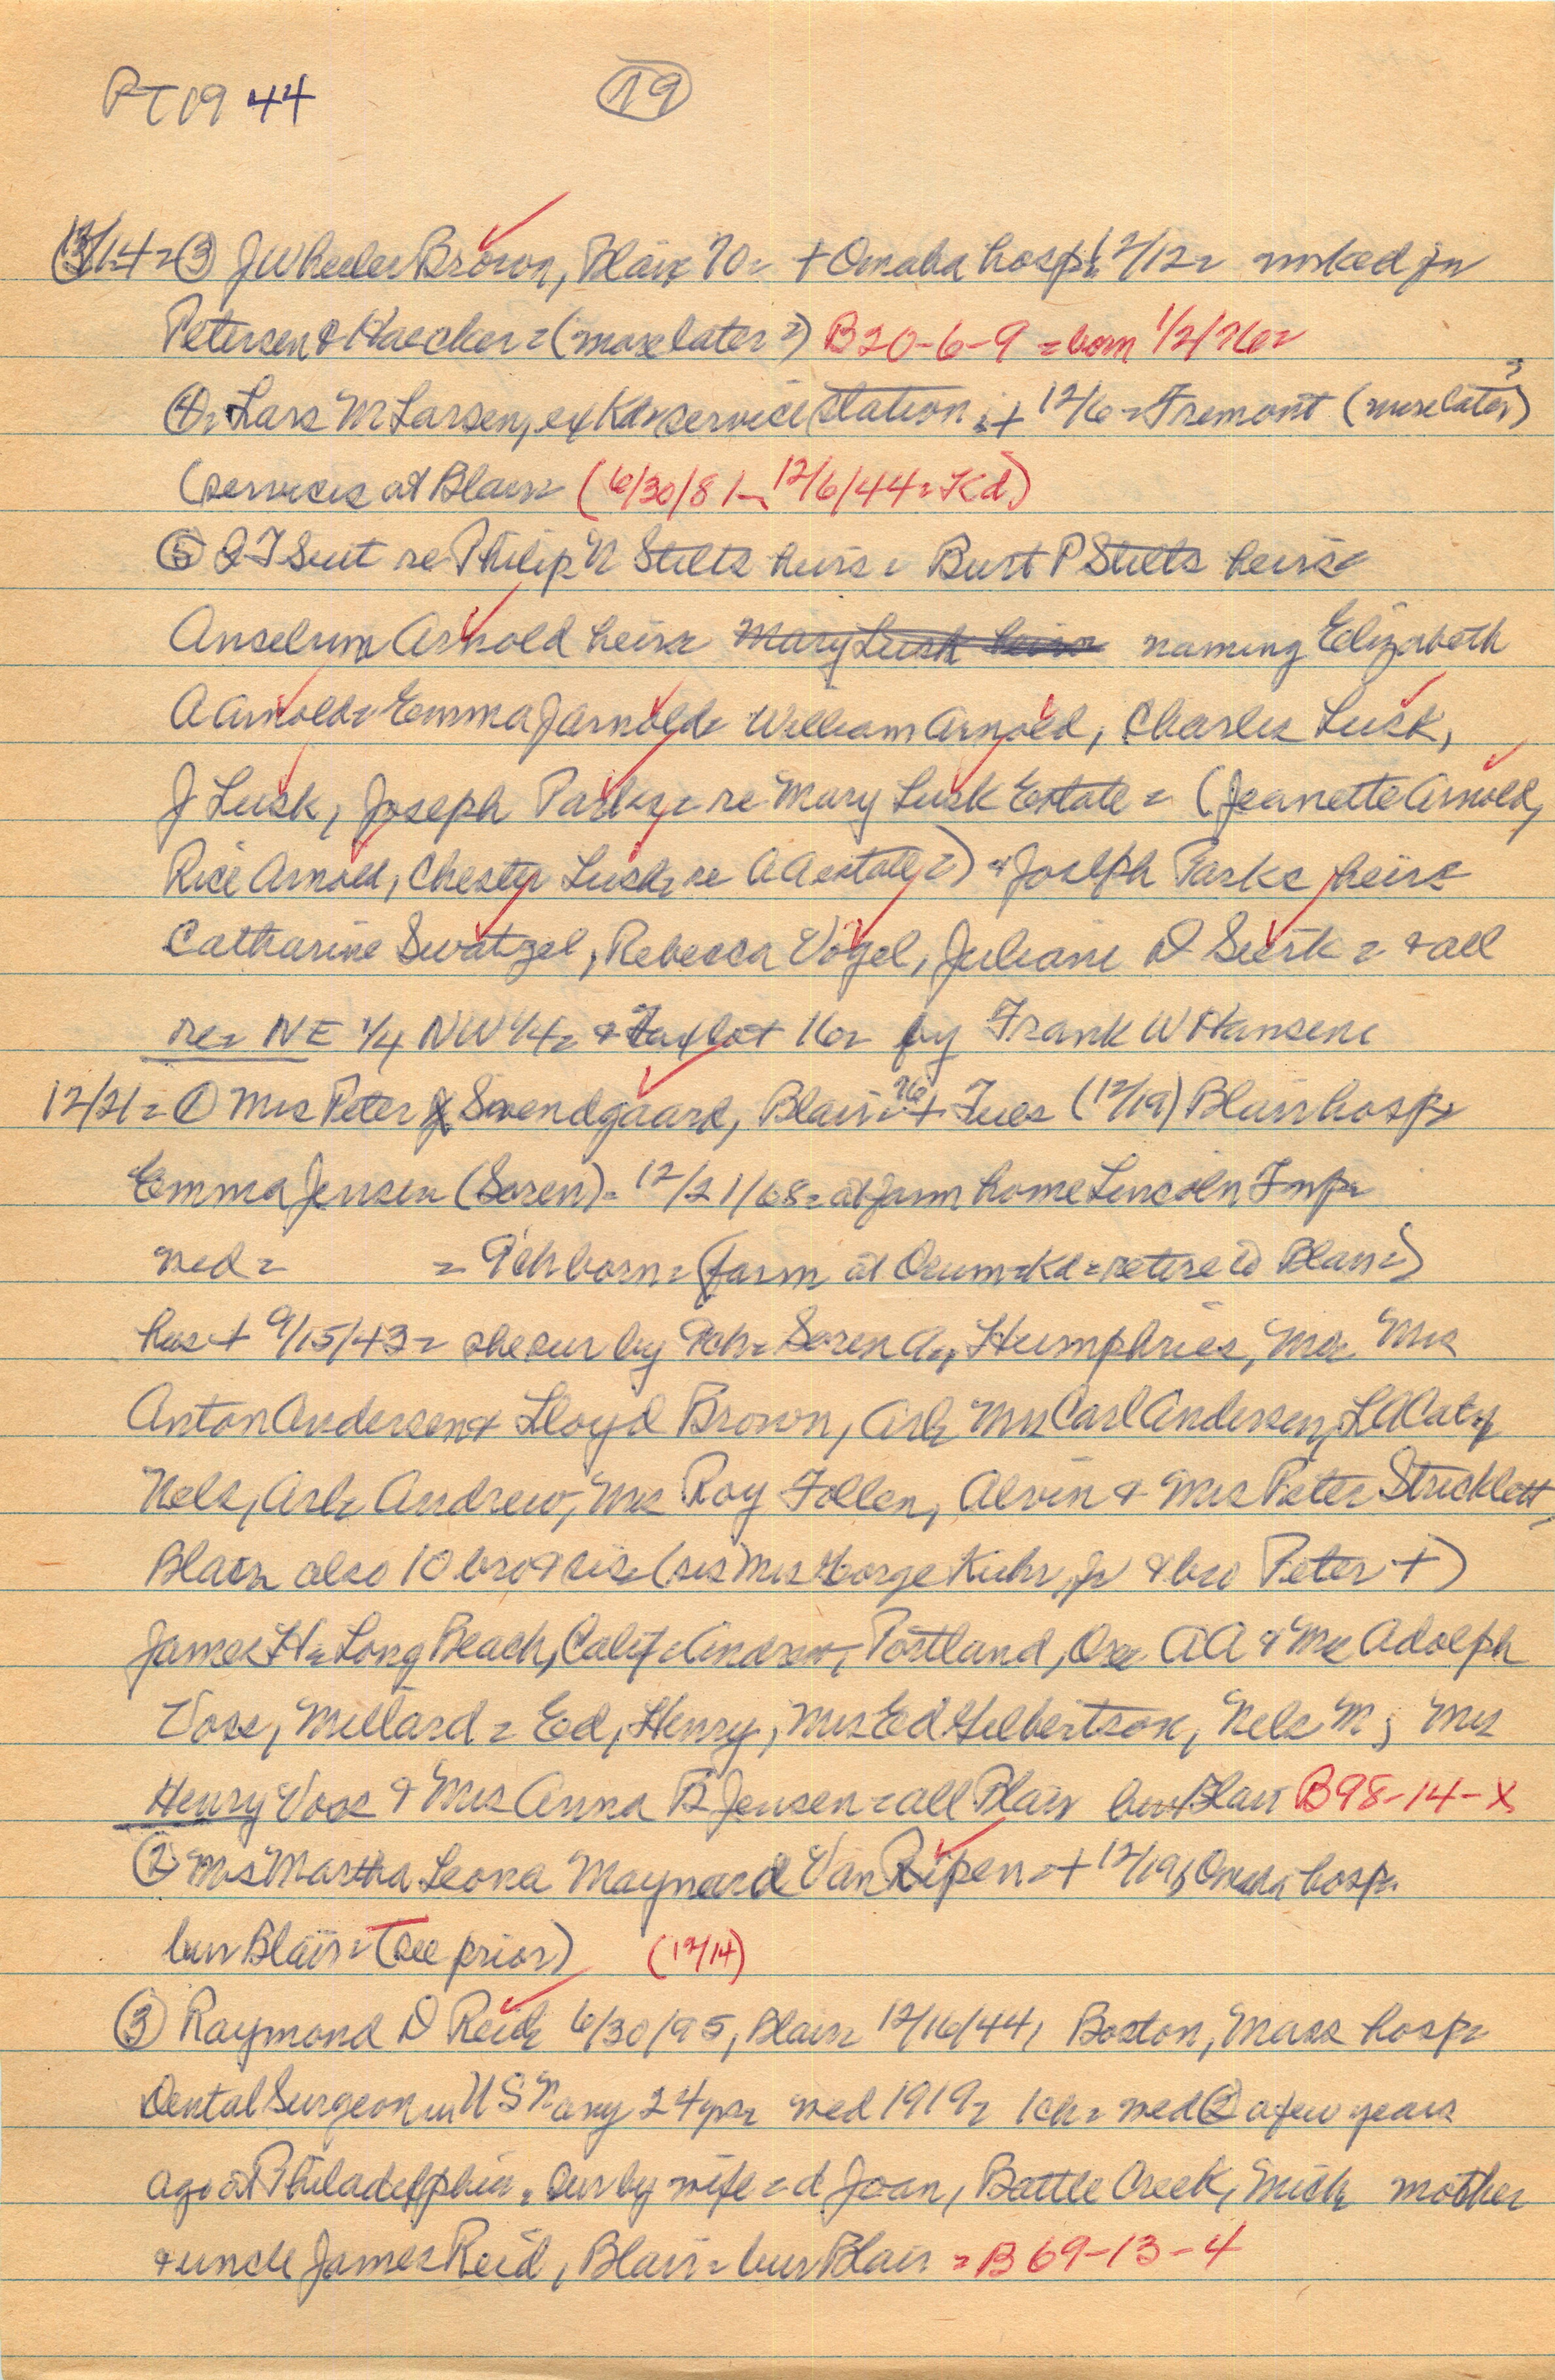 PT 1944 (19)
12/14= (3) J Wheeler Brown, Blair 70= + Omaha hosp= 12/12=
Petersen & Haecker= (more later=) B20-6-9 = born 1/2/76=
(4)= Lars M Larsen, ex Kd= service station, + 12/6= Fremont (more later=)
(services at Blair= (6/30/81- 12/6/44= Kd)
(5) Q T Suit re Philip N Stilts heirs= Burt P Stilts heirs=
Anselum Arnold heirs= Mary Lusk heirs naming Elizabeth
A Arnold= Emma J Arnold= William Arnold, Charles Lusk,
J Lusk, Joseph Parks= re Mary Lusk Estate= (Jeanette Arnold,
Rice Arnold, Chester Lusk= re AA estate=) & Joseph Parks heirs
Catharine Swatzel, Rebecca Vogel, Juliane D Sierk= & all
re= NE 1/4 NW 1/4= & Tax lot 16= by Frank W Hansen=
12/21= (1) Mrs Peter Svendgaard, Blair= 76 + Tues (12/19) Blair hosp=
Emma Jensen (Soren)= 12/21/68= at farm home Lincoln Twp=
med= = 9 ch born= (farm at Orum= Kd= retired Blair=)
hus + 9/15/43= she sur by 9 ch= Soren A, Humphries, Mo= Mrs
Anton Andersen & Lloyd Brown, Arl= Mrs Carl Andersen, LA Cal=
Nels, Arl= Andrew, Mrs Roy Follen, Alvin & Mrs Peter Stricklett,
Blair= also 10 bro & sis= (sis Mrs George Kuhr, Jr & bro Peter +)
James H= Long Beach, Calif= Andrew, Portland, Ore= AA & Mrs Adolph
Voss, Millard= Ed, Henry, Mrs Ed Gilbertson, Nels M; Mrs
Henry Voss & Mrs Anna B Jensen= all Blair bur Blair B98-14-X
(2) Mrs Martha Leona Maynard Van Ripen= + 12/19, Omaha hosp=
bur Blair= (see prior) (12/14)
(3) Raymond D Reid= 6/30/95, Blair= 12/16/44, Boston, Mass hosp=
Dental Surgeon in US Navy 24 yrs= med 1919= 1 ch= med (2) a few years
ago at Philadelphia= sur by wife= d Joan, Battle Creek, Mich= mother
& uncle James Reid, Blair= bur Blair= B69-13-4